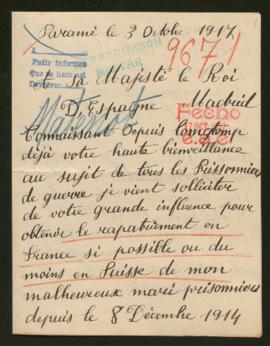 Paramé le 3 Octobre 1917
9671
A Sa Majesté le Roi
D'Espagne Madrid
Connaissant depuis longtemp
déjà votre haute bienveillance
au sujet de tous les Prisonniers
de guerre je vient solliciter
de votre grande influence pour
obtenir le rapatriement en
France si possible ou du
moins en Suisse de mon
malheureux mari prisonnier
depuis le 8 Décembre 1914